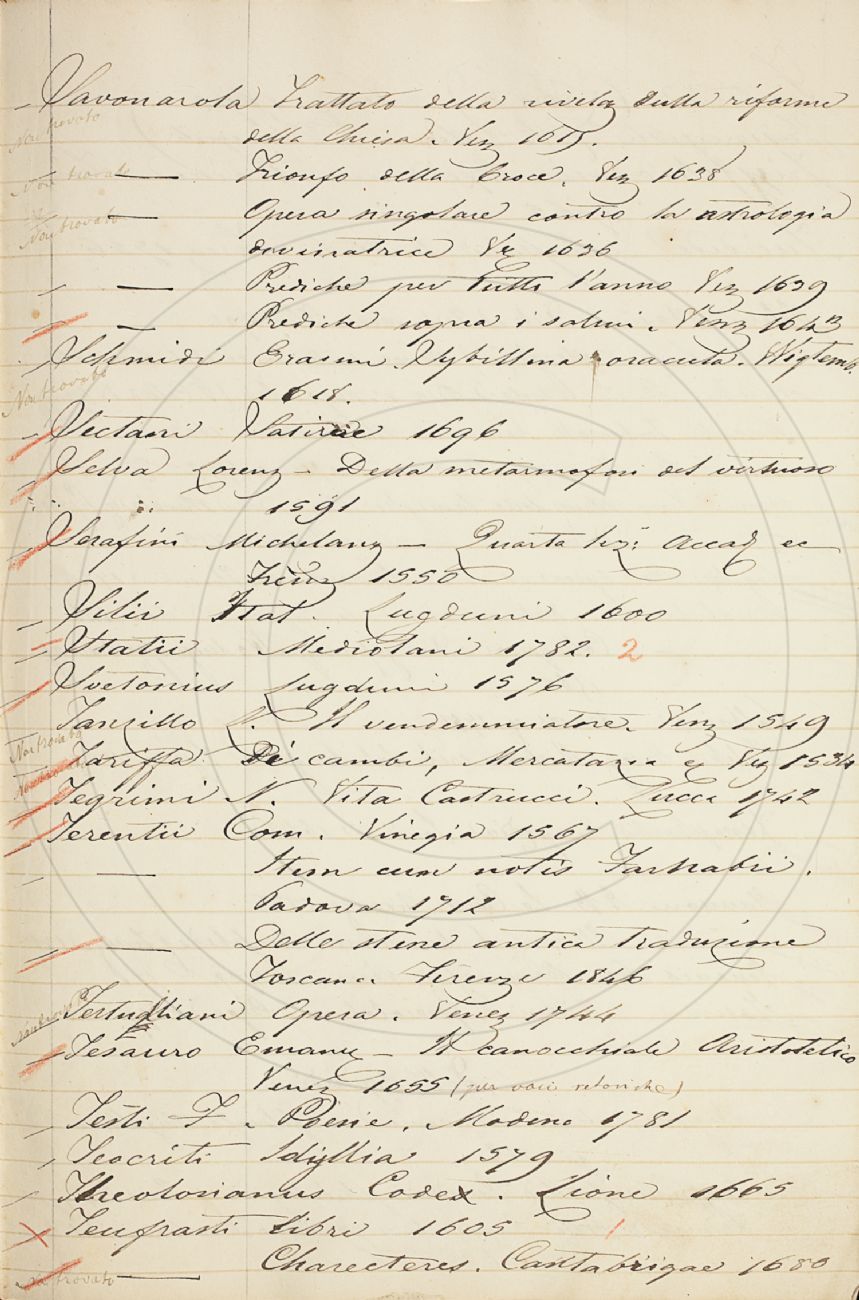 Savonarola Trattato della rivelaz sulla riforme
Non trovato
della Chiesa. Ven
Non trovato — Trionfo della Croce. Ven 1638
Non trovato — Opera singolare contro la astrologia
divinatrice Ve 1636
— Prediche per tutti l'anno Ven 1639
— Prediche sopra i salmi. Venz 1643
Schmidi Erasmi Sybillina oracula. Wigtemb.
Non trovato
1618.
Sectani Satirae 1696
Selva Lorenz — Della metarmofosi del virtuoso
1591
Serafini Michelang — Quarta lez: Accad ec
Firenz 1550
Silii Ital. Lugduni 1600
Statii Mediolani 1782. 2
Svetonius Lugduni 1576
Tansillo L. Il vendemmiatore. Venz 1549
Non trovato
Tariffa De cambi, Mercatanzia ec Vez 1534
Tegrimi N. Vita Castrucci. Lucca 1742
Terentii Com. Vinegia 1567
— Item cum notis Farnabii.
Padova 1712
— Delle stene antica traduzione
Toscana. Firenze 1846
Tertugliani Opera. Venez 1744
Tesauro Emanu — Il canocchiale Aristotelico
Venez 1655 (per voci retoriche)
Testi F. Poesie. Modena 1781
Teocriti Idyllia 1579
Theotosianus Codex. Lione 1665
Teufrasti libri 1605
Non trovato — Charecteres. Cantabrigae 1680